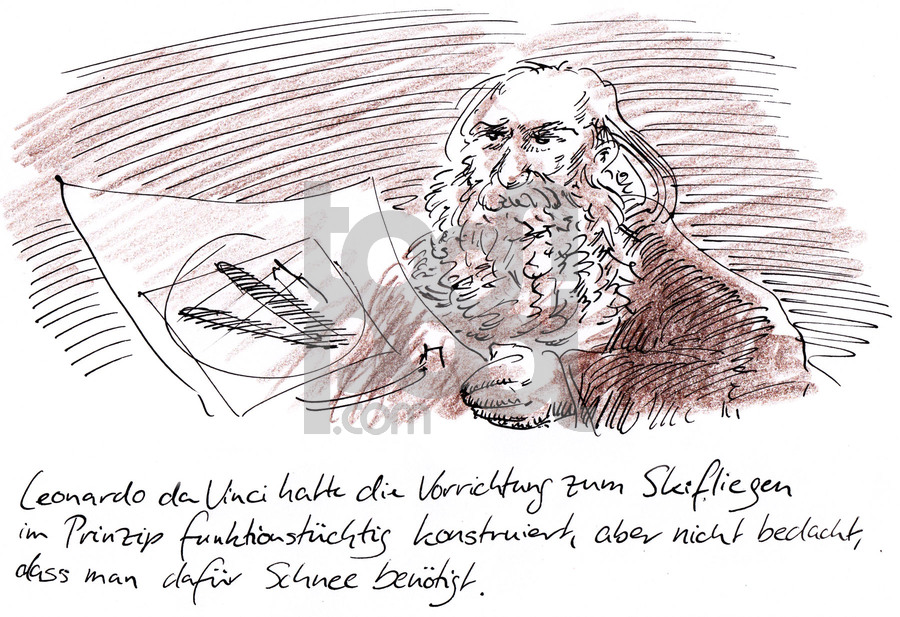 toonpool
.com
Leonardo da Vinci hatte die Vorrichtung zum Skifliegen
im Prinzip funktionstüchtig konstruiert, aber nicht bedacht,
dass man dafür Schnee benötigt.